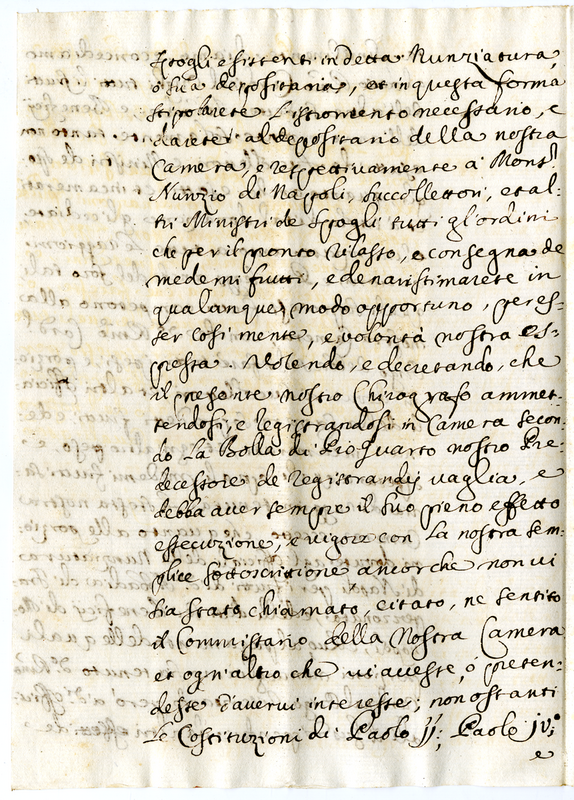 Spogli esistenti in detta Nunziatura,
ò sua depositaria, et in questa forma
stipolarete L'istromento necessario, e
darete al depositario della nostra
Camera, e respettivamente à Monsr.
Nunzio di Napoli, Succollettori, et al-
tri Ministri de Spogli tutti gl'ordini
che per il pronto rilasso, e consegna de
medemi frutti, e denari stimarete in
qualunque modo opportuno, per es-
ser così mente, e volontà nostra es-
pressa. Volendo, e decretando, che
il presente nostro Chirografo ammet-
tendosi, e registrandosi in Camera secon-
do La Bolla di Pio Quarto nostro Pre-
decessore de Registrandis vaglia, e
debba aver sempre il suo pieno effetto
essecuzione, e vigore con La nostra sem-
plice sottoscrittione ancorche non vi
sia stato chiamato, citato, ne sentito
il Commissario della Nostra Camera
et ogn'altro che vi avesse, ò preten-
desse d'avervi interesse; non ostanti
Le Costituzioni di Paolo ij; Paolo iv;
e